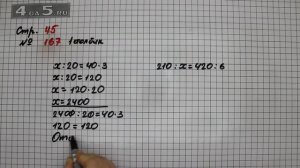 4GDZ.RU
Стр. 45
№ 167 1 столбик
x : 20 = 40 · 3
x : 20 = 120
x = 120 · 20
x = 2400
2400 : 20 = 40 · 3
120 = 120
Отв
210 : x = 420 : 6